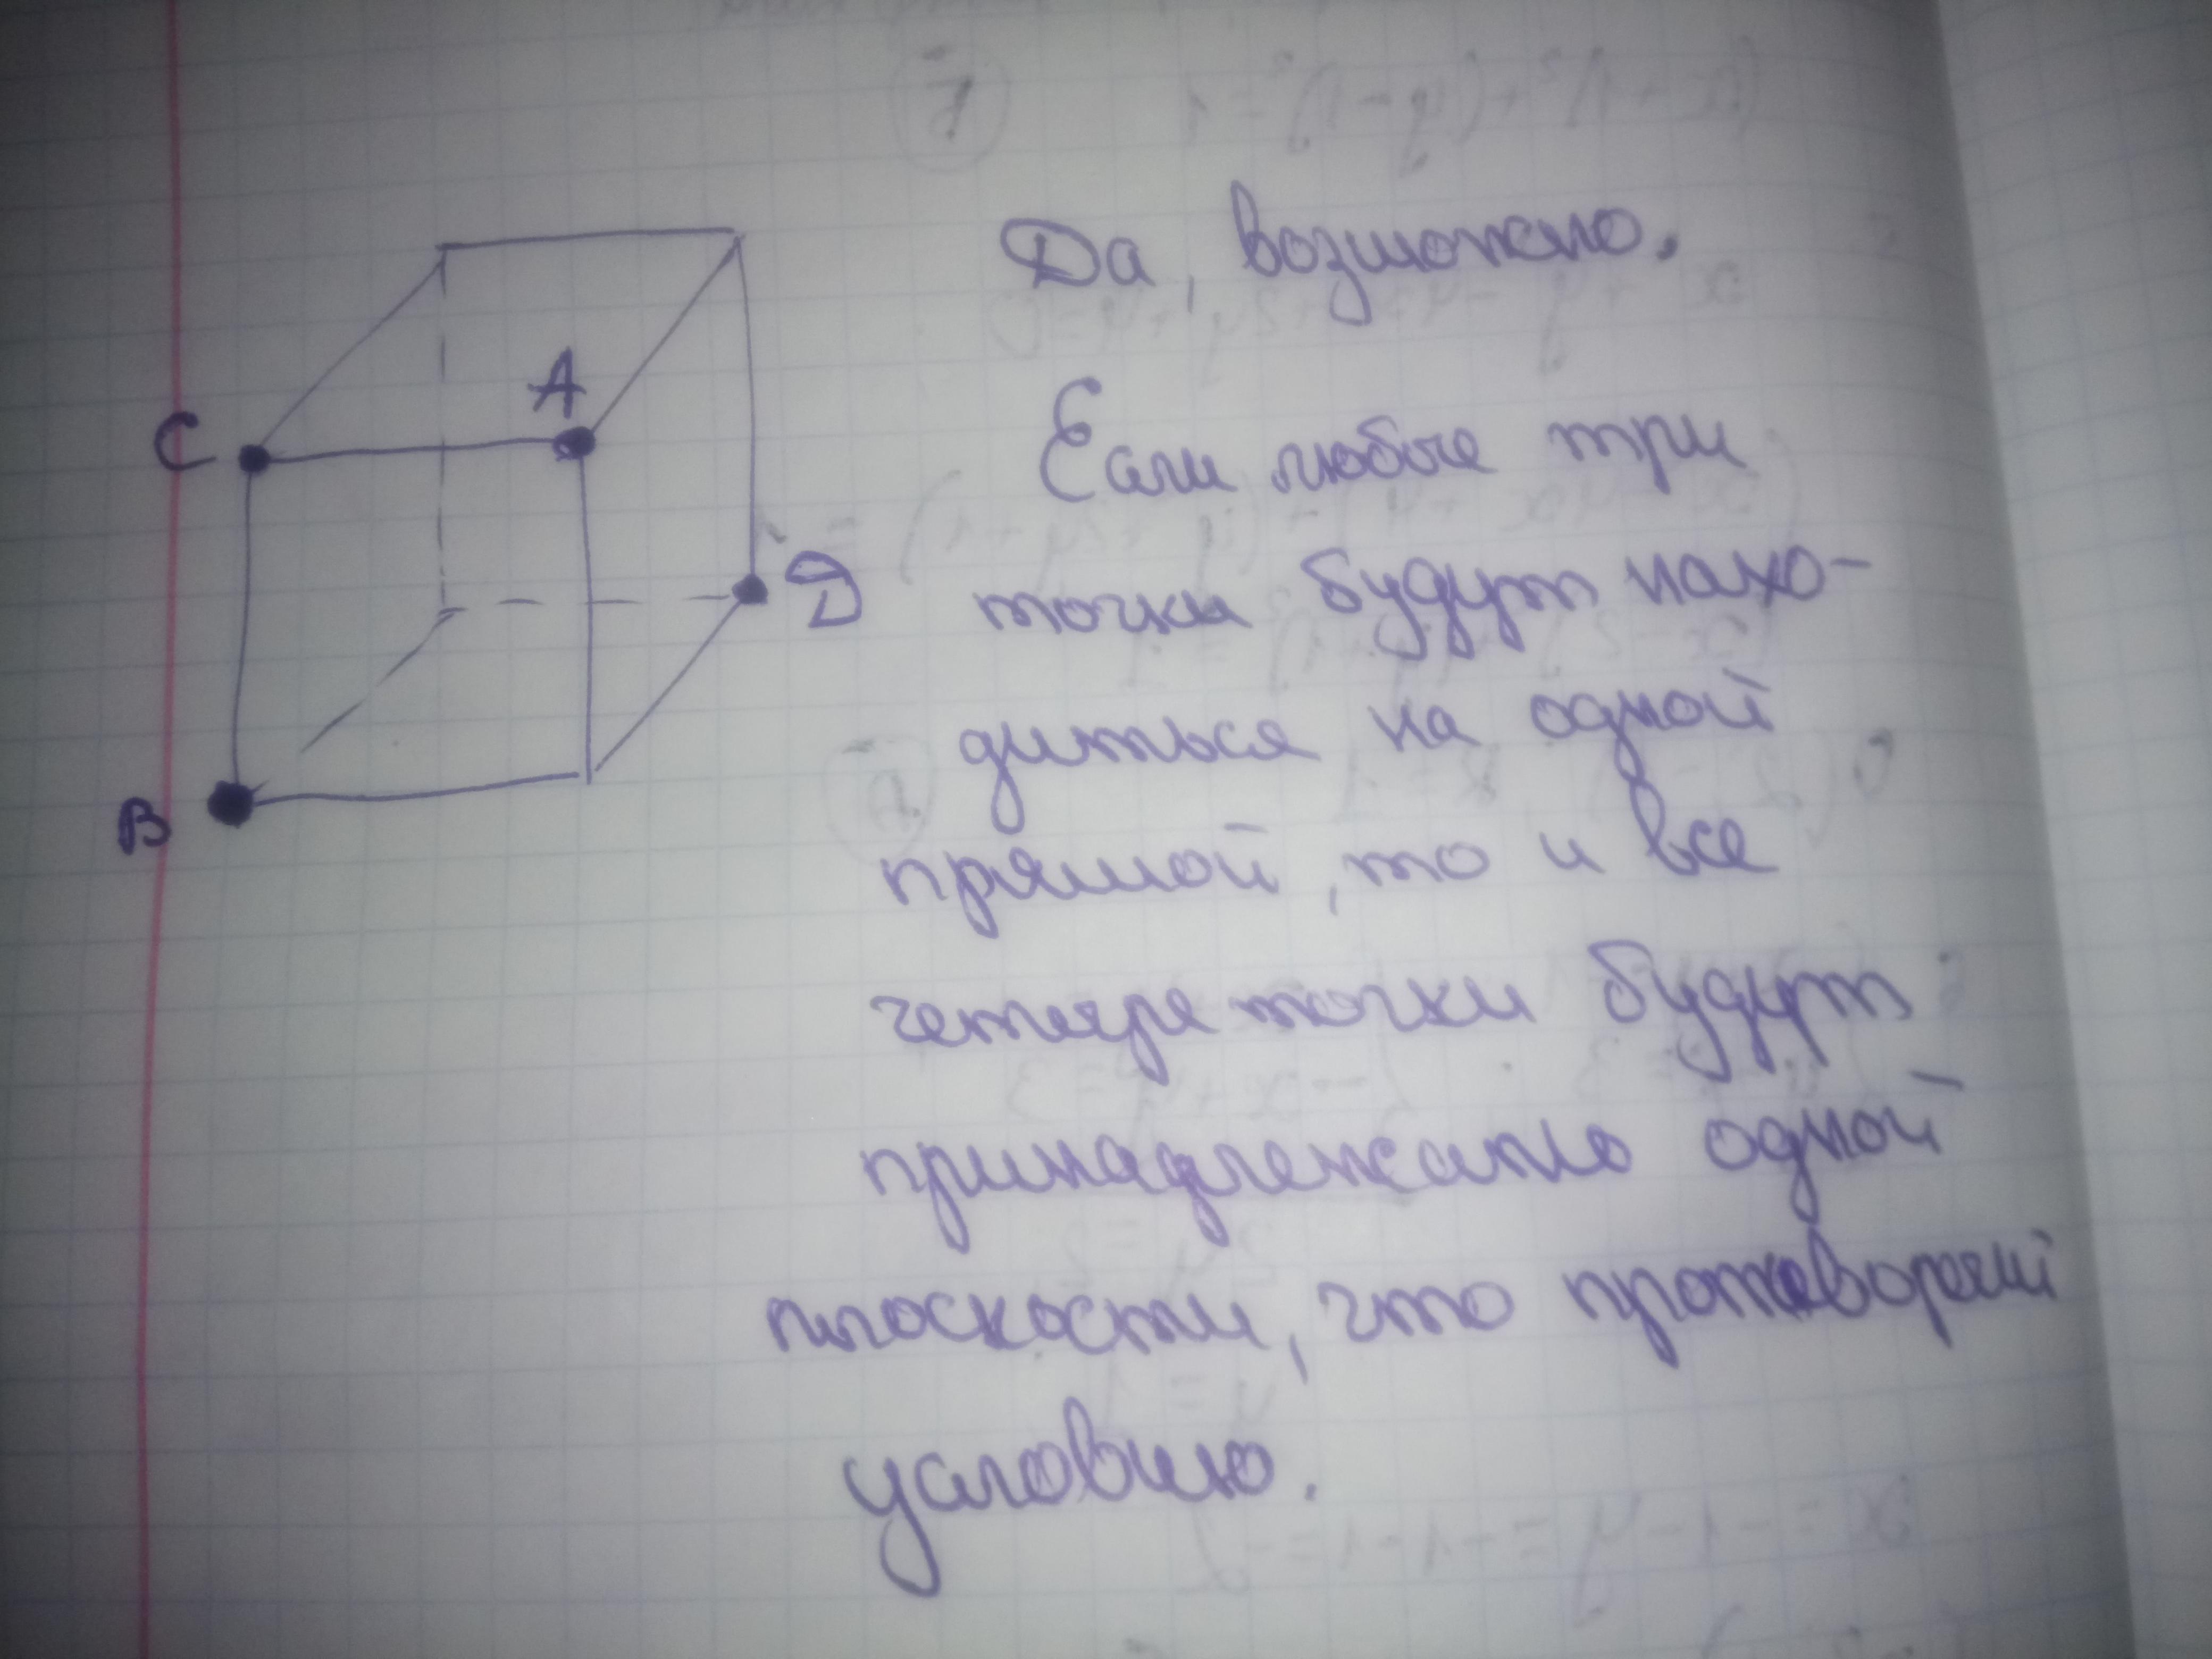 C
A
D
B
Да, возможно.
Если любые три
точки будут нахо-
диться на одной
прямой, то и все
четыре точки будут
принадлежать одной
плоскости, что
условию.